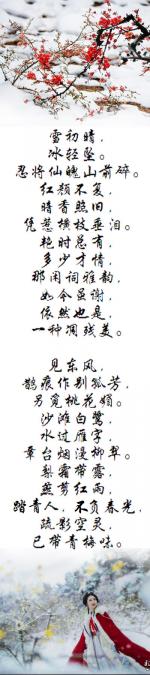 雪初晴，
冰轻坠。
忍将仙魄山前碎。
红颜不复，
暗香照旧，
凭惹横枝垂泪。
艳时总有，
多少才情，
那闲词雅韵，
如今虽谢，
依然也是，
一种凋残美。
见东风，
鹊痕作别孤芳，
另觅桃花媚。
沙滩白鹭，
水过雁字，
章台烟漫柳翠。
梨霜带露，
燕剪红雨，
踏青人，不负春光，
疏影空灵，
已带青梅味。